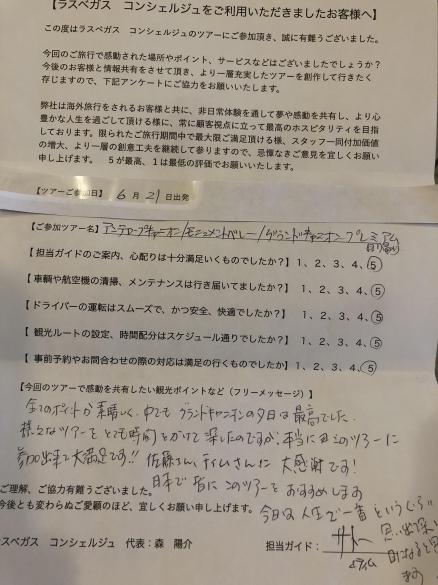 【ラスベガス コンシェルジュをご利用いただきましたお客様へ】
この度はラスベガス コンシェルジュのツアーにご参加頂き、誠に有難うございました。
今回のご旅行で感動された場所やポイント、サービスなどはございましたでしょうか？
今後のお客様と情報共有をさせて頂き、より一層充実したツアーを創作して行きたく
存じますので、下記アンケートにご協力をお願いいたします。
弊社は海外旅行をされるお客様と共に、非日常体験を通して夢や感動を共有し、より心
豊かな人生を過ごして頂ける様に、常に顧客視点に立って最高のホスピタリティを目指
しております。限られたご旅行期間中で最大限ご満足頂ける様、スタッフ一同付加価値
の増大、より一層の創意工夫を継続して参りますので、忌憚なきご意見を宜しくお願い
申し上げます。 5が最高、1は最低の評価でお願いいたします。
【ツアーご参加日】 6 月 21 日出発
【ご参加ツアー名】アンテロープキャニオン/モニュメントバレー/グランドキャニオン プレミアム
日帰り
【担当ガイドのご案内、心配りは十分満足いくものでしたか？】1、2、3、4、⑤
【車輌や航空機の清掃、メンテナンスは行き届いてましたか？】 1、2、3、4、⑤
【ドライバーの運転はスムーズで、かつ安全、快適でしたか？】 1、2、3、4、⑤
【 観光ルートの設定、時間配分はスケジュール通りでしたか？】 1、2、3、4、⑤
【 事前予約やお問合わせの際の対応は満足の行くものでしたか】 1、2、3、4、⑤
【今回のツアーで感動を共有したい観光ポイントなど（フリーメッセージ）】
全てのポイントが素晴しく、中でも グランドキャニオンの夕日は最高でした。
様々なツアーをとても時間をかけて 探したのですが、本当に このツアーに
参加出来て大満足です!! 佐藤さん、ティムさんに 大感謝です！
日本で 皆に このツアーを おすすめします
今日は 人生で一番 というくらい
思い出深い
日になると思
ます
ご理解、ご協力有難うございました。
今後とも変わらぬご愛顧のほど、宜しくお願い申し上げます。
ラスベガス コンシェルジュ 代表：森 陽介
担当ガイド：
ティム